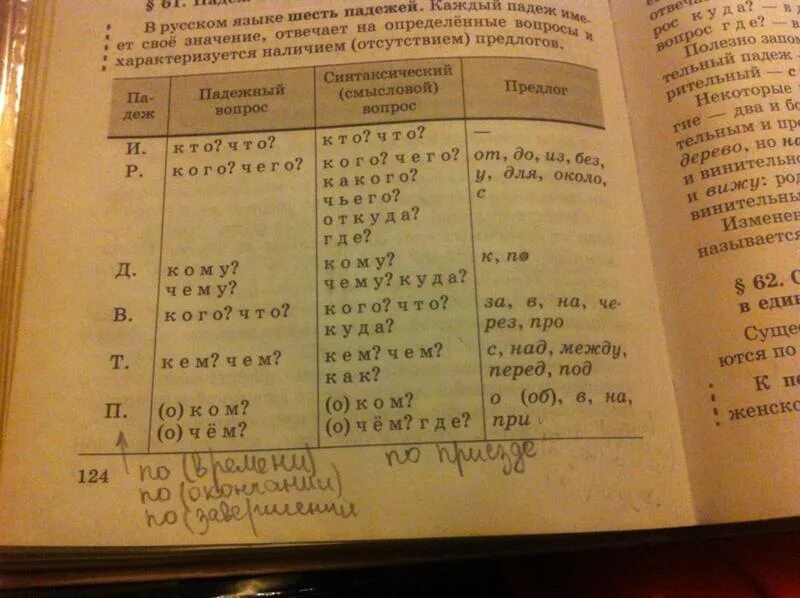 § 61. Падеж
В русском языке шесть падежей. Каждый падеж име-
ет своё значение, отвечает на определённые вопросы и
характеризуется наличием (отсутствием) предлогов.
Па-
деж
Падежный
вопрос
Синтаксический
(смысловой)
вопрос
Предлог
И.
кто? что?
кто? что?
—
Р.
кого? чего?
кого? чего?
какого?
чьего?
откуда?
где?
от, до, из, без,
у, для, около,
с
Д.
кому?
чему?
кому?
чему? куда?
к, по
В.
кого? что?
кого? что?
куда?
за, в, на, че-
рез, про
Т.
кем? чем?
кем? чем?
как?
с, над, между,
перед, под
П.
(о) ком?
(о) чём?
(о) ком?
(о) чём? где?
о (об), в, на,
при
124
по (времени)
по (окончании)
по (завершении
по приезде
отвеча
рос куда? — в
вопрос где? — в
Полезно запом
тельный падеж —
рительный — с
Некоторые
гие — два и бо
тельным и пре
дерево, но на
и винительно
и вижу: род
винительны
Изменен
называется
§ 62. С
в един
Сущес
ются по
К пе
женско